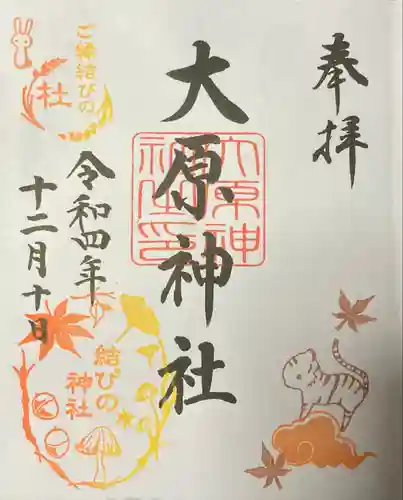 奉拝
大原神社
大原神社印
令和四年
十二月十日
ご縁結びの
社
結びの
神社